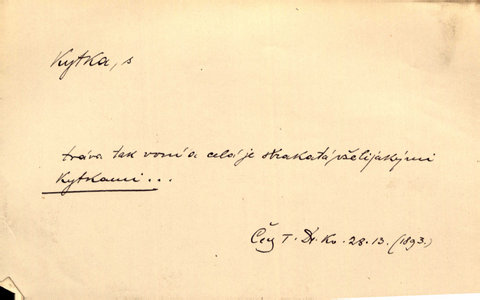 Kytka, s
tráva tak voní a celá je strakatá všelijakými
kytkami...
Čes T. Dr. Kv. 28.13. (1893.)